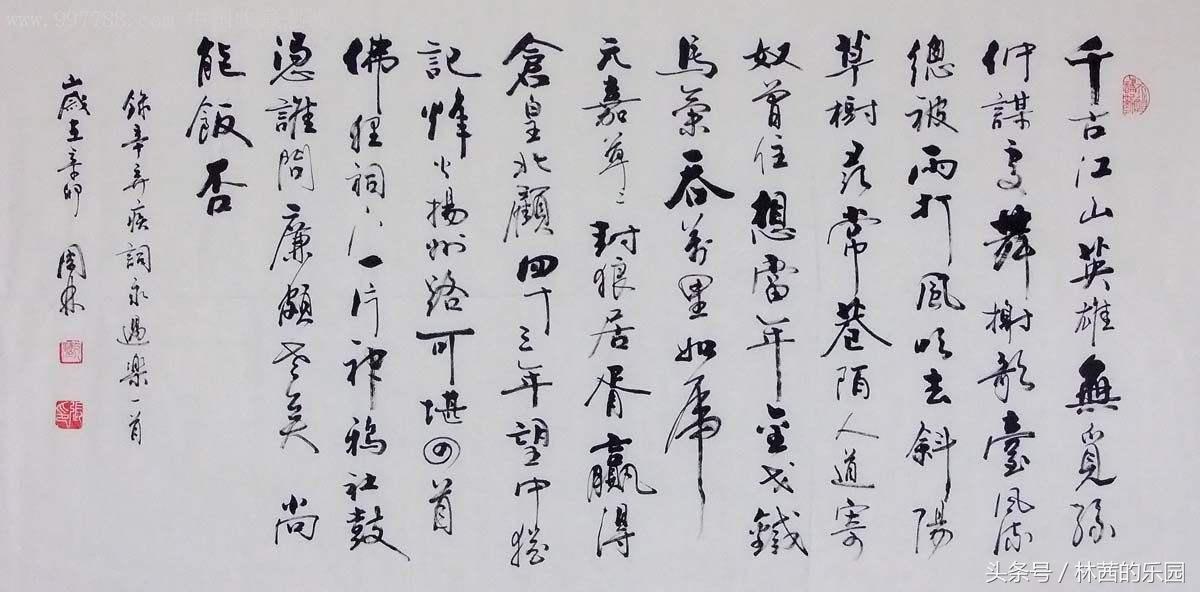 千古江山英雄無覓孫
仲謀處舞榭歌臺風流
總被雨打風吹去斜陽
草樹尋常巷陌人道寄
奴曾住想當年金戈鐵
馬氣吞萬里如虎
元嘉草々封狼居胥贏得
倉皇北顧四十三年望中猶
記烽火揚州路可堪回首
佛狸祠下一片神鴉社鼓
憑誰問廉頗老矣尚
能飯否
錄辛弃疾詞永遇樂一首
歲在辛卯 周林
www.997788.com
头条号 / 林茜的乐园